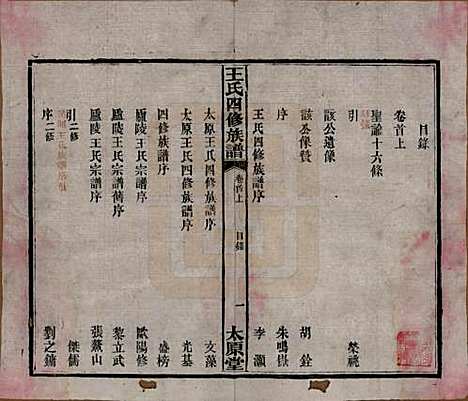 目錄
卷首上
聖諭十六條
引 榮祧
該公遺像
該公像贊 胡銓
序 朱鳴嶽
王氏四修族譜序 李灝
王氏四修族譜
卷首上
目錄
一
太原堂
太原王氏四修族譜序 文藻
太原王氏四修族譜序 光基
四修族譜序 盛榜
廬陵王氏宗譜序 歐陽修
廬陵王氏宗譜舊序 黎立武
廬陵王氏宗譜序 張鰲山
引二修 傑儒
序二修 劉之鏞